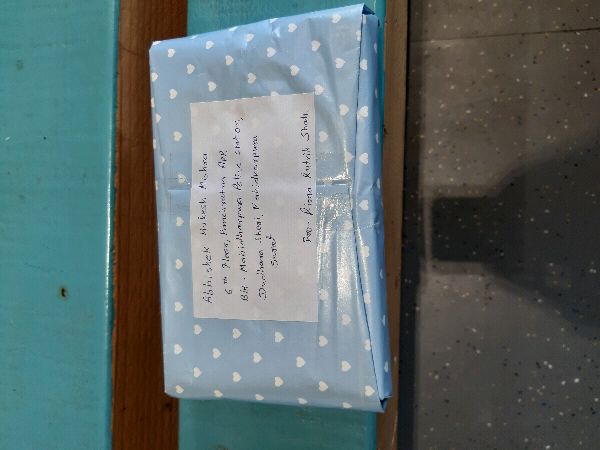 Abhishek Mukesh Mishra
6th Floor, Panchratna App,
B/h - Mahidharpura Police Station,
Dudhara Sheri, Mahidharpura
Surat
From - Riona Rutvik Shah.